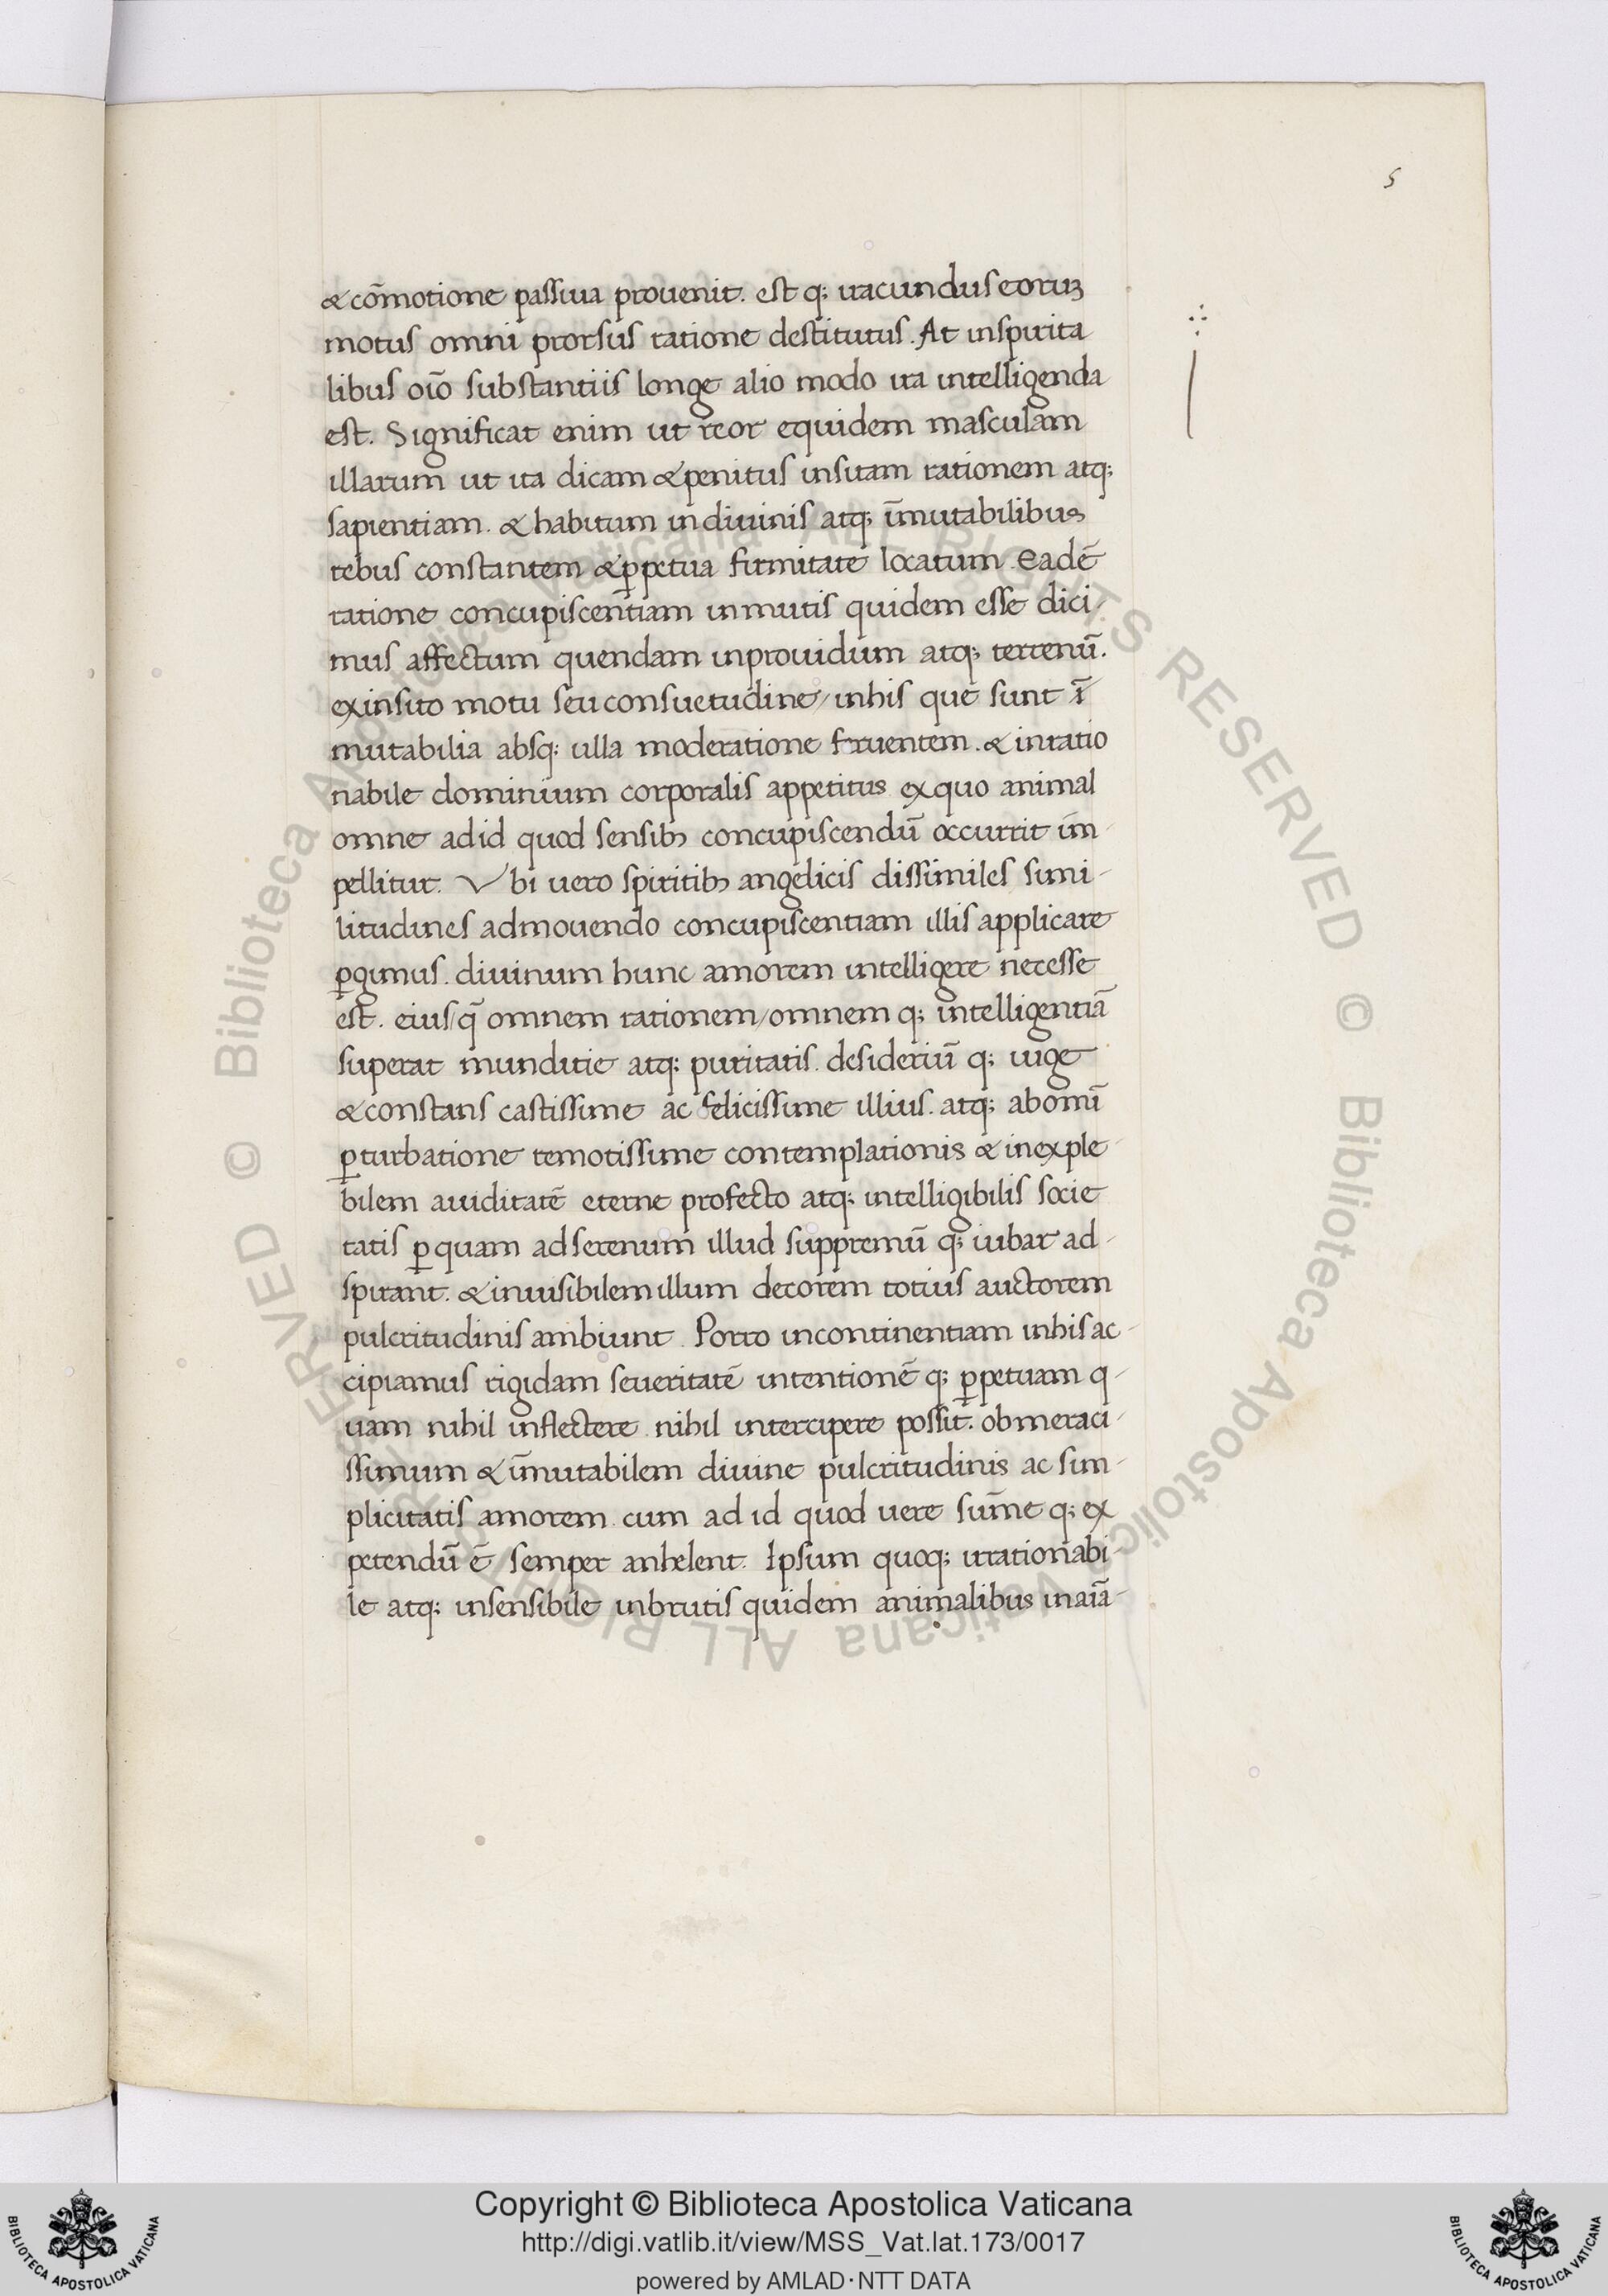 5
& cōmotione passiua prouenit. est q; iracundus eorum
motus omni prorsus ratione destitutus. At in spirita
libus oīo substantiis longe alio modo ira intelligenda
est. Significat enim ut reor equidem masculam
illarum ut ita dicam & penitus insitam rationem atq;
sapientiam. & habitum in diuinis atq; īmutabilibus
rebus constantem & ꝑpetua firmitate locatum. Eadē
ratione concupiscentiam in mutis quidem esse dici-
mus affectum quendam inprouidum atq; terrenū.
ex insito motu seu consuetudine/ in his que sunt ī
mutabilia absq; ulla moderatione fruentem. & inratio
nabile dominium corporalis appetitus ex quo animal
omne ad id quod sensibꝫ concupiscendū occurrit im-
pellitur. Vbi uero spiritibꝫ angelicis dissimiles simi-
litudines admouendo concupiscentiam illis applicare
ꝑgimus. diuinum hunc amorem intelligere necesse
est. eius/ q̄ omnem rationem/ omnem q; intelligentiā
superat munditie atq; puritatis. desideriū q; iuge
& constans castissime ac felicissime illius. atq; ab omī
ꝑturbatione remotissime contemplationis & inexple-
bilem auiditatē eterne profecto atq; intelligibilis socie
tatis ꝑ quam ad serenum illud suppremū q; iubar ad-
spirant. & inuisibilem illum decorem totius auctorem
pulcritudinis ambiunt. Porro incontinentiam in his ac-
cipiamus rigidam seueritatē intentionē q; ꝑpetuam q-
uam nihil inflectere. nihil intercipere possit. ob meraci-
ssimum & īmutabilem diuine pulcritudinis ac sim-
plicitatis amorem. cum ad id quod uere sūme q; ex
petendū ē semper anhelent. Ipsum quoq; irrationabi-
le atq; insensibile in brutis quidem animalibus in aiā-
© Biblioteca Apostolica Vaticana ALL RIGHTS RESERVED © Biblioteca Apostolica Vaticana ALL RIGHTS RESERVED
Copyright © Biblioteca Apostolica Vaticana
http://digi.vatlib.it/view/MSS_Vat.lat.173/0017
powered by AMLAD·NTT DATA
BIBLIOTECA APOSTOLICA VATICANA
BIBLIOTECA APOSTOLICA VATICANA